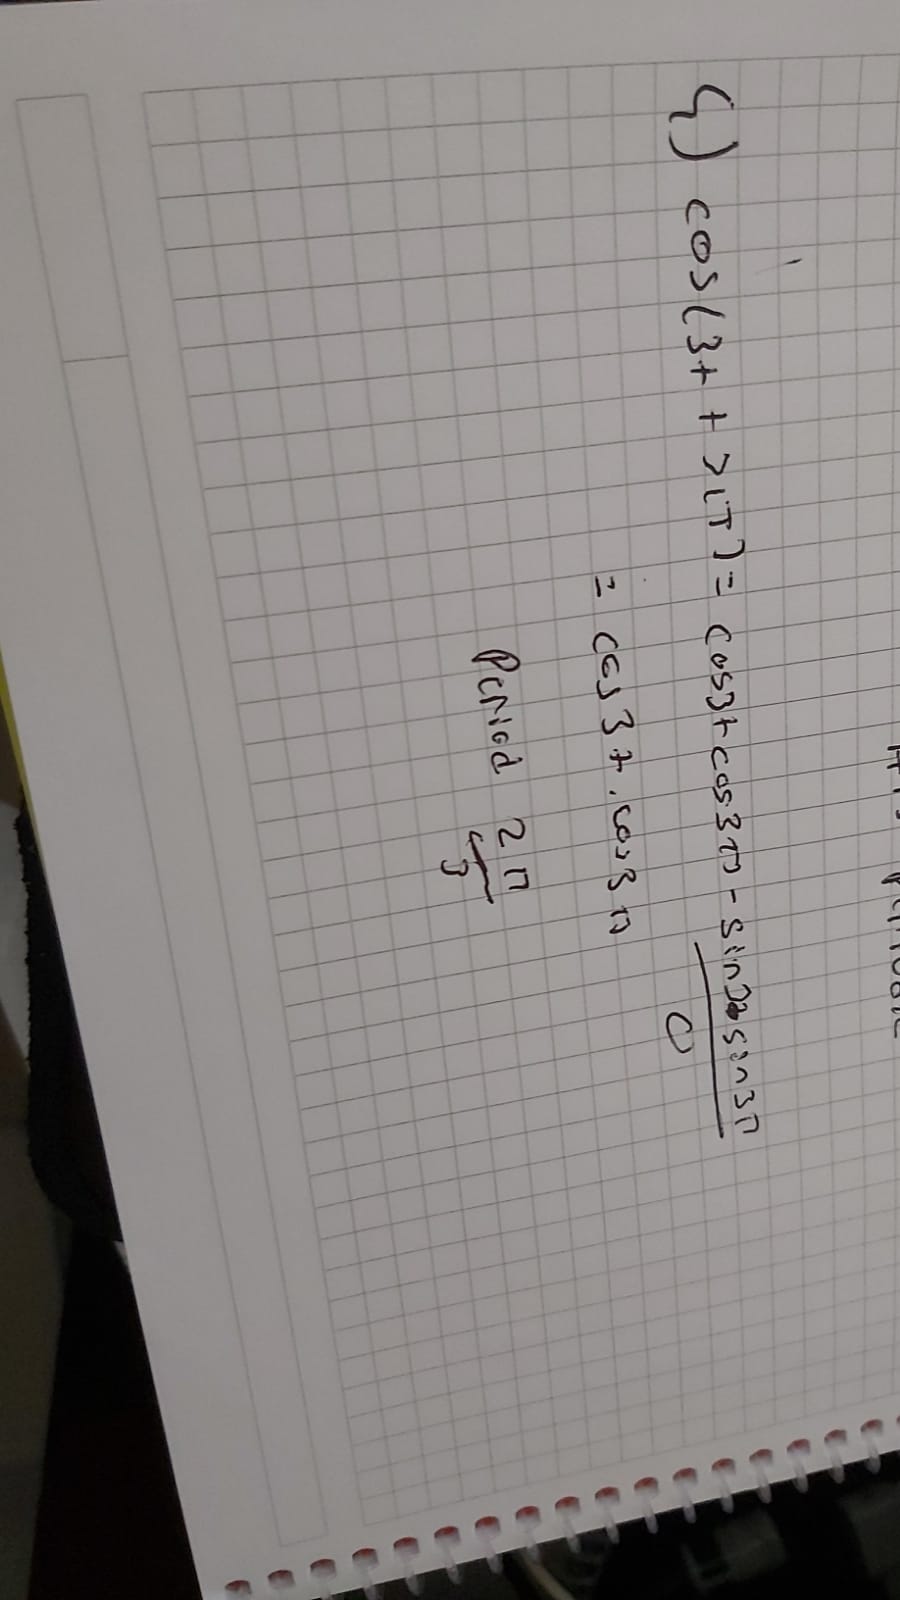 Periodic
4) cos(3t + 3π) = cos3t cos3π - sin3t sin3π
0
= cos3t . cos3π
Period 2π
3